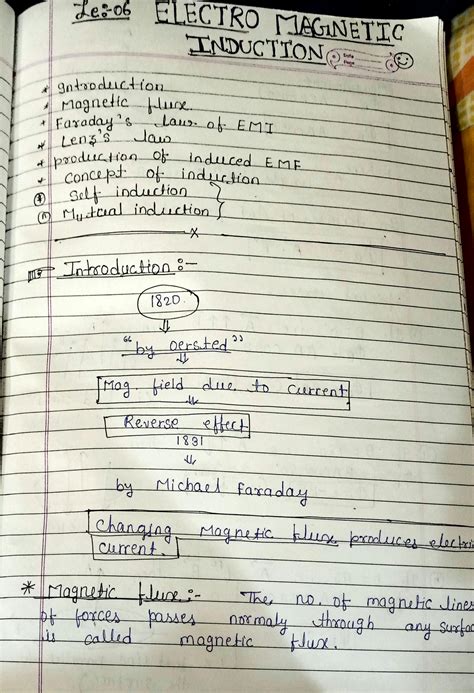 Le:-06 ELECTRO MAGNETIC
INDUCTION
* Introduction
* Magnetic flux
* Faraday's Laws of EMI
* Lenz's law
* production of induced EMF
* Concept of induction
(i) Self induction
(ii) Mutual induction
x
Introduction :-
1820
"by oersted"
Mag. field due to current
Reverse effect
1891
by Michael Faraday
Changing Magnetic flux produces electri
current.
* Magnetic flux:- The no. of magnetic lines
of forces passes normaly through any surfac
is called magnetic flux.